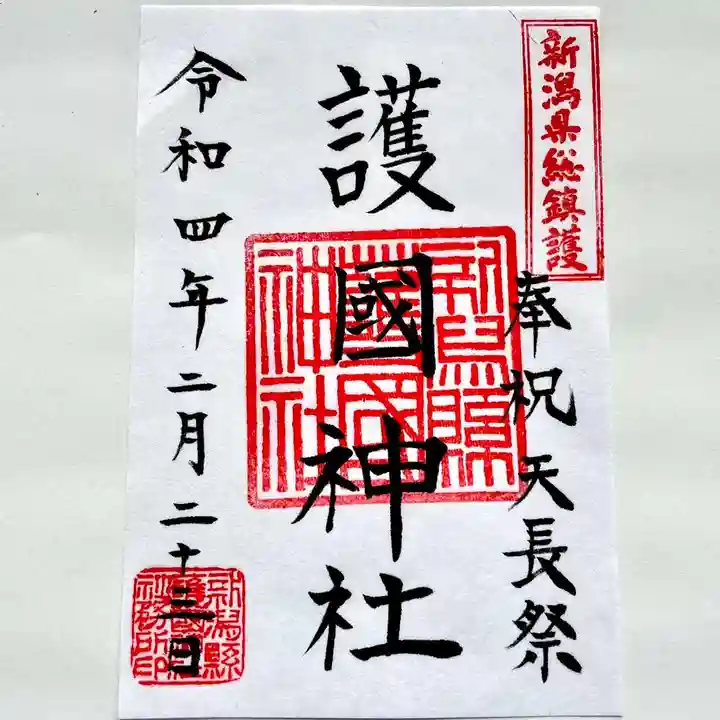 新潟県総鎮護
奉祝天長祭
護國神社
新潟縣
護國神社
令和四年二月二十三日
新潟縣
護國神社
社務所印